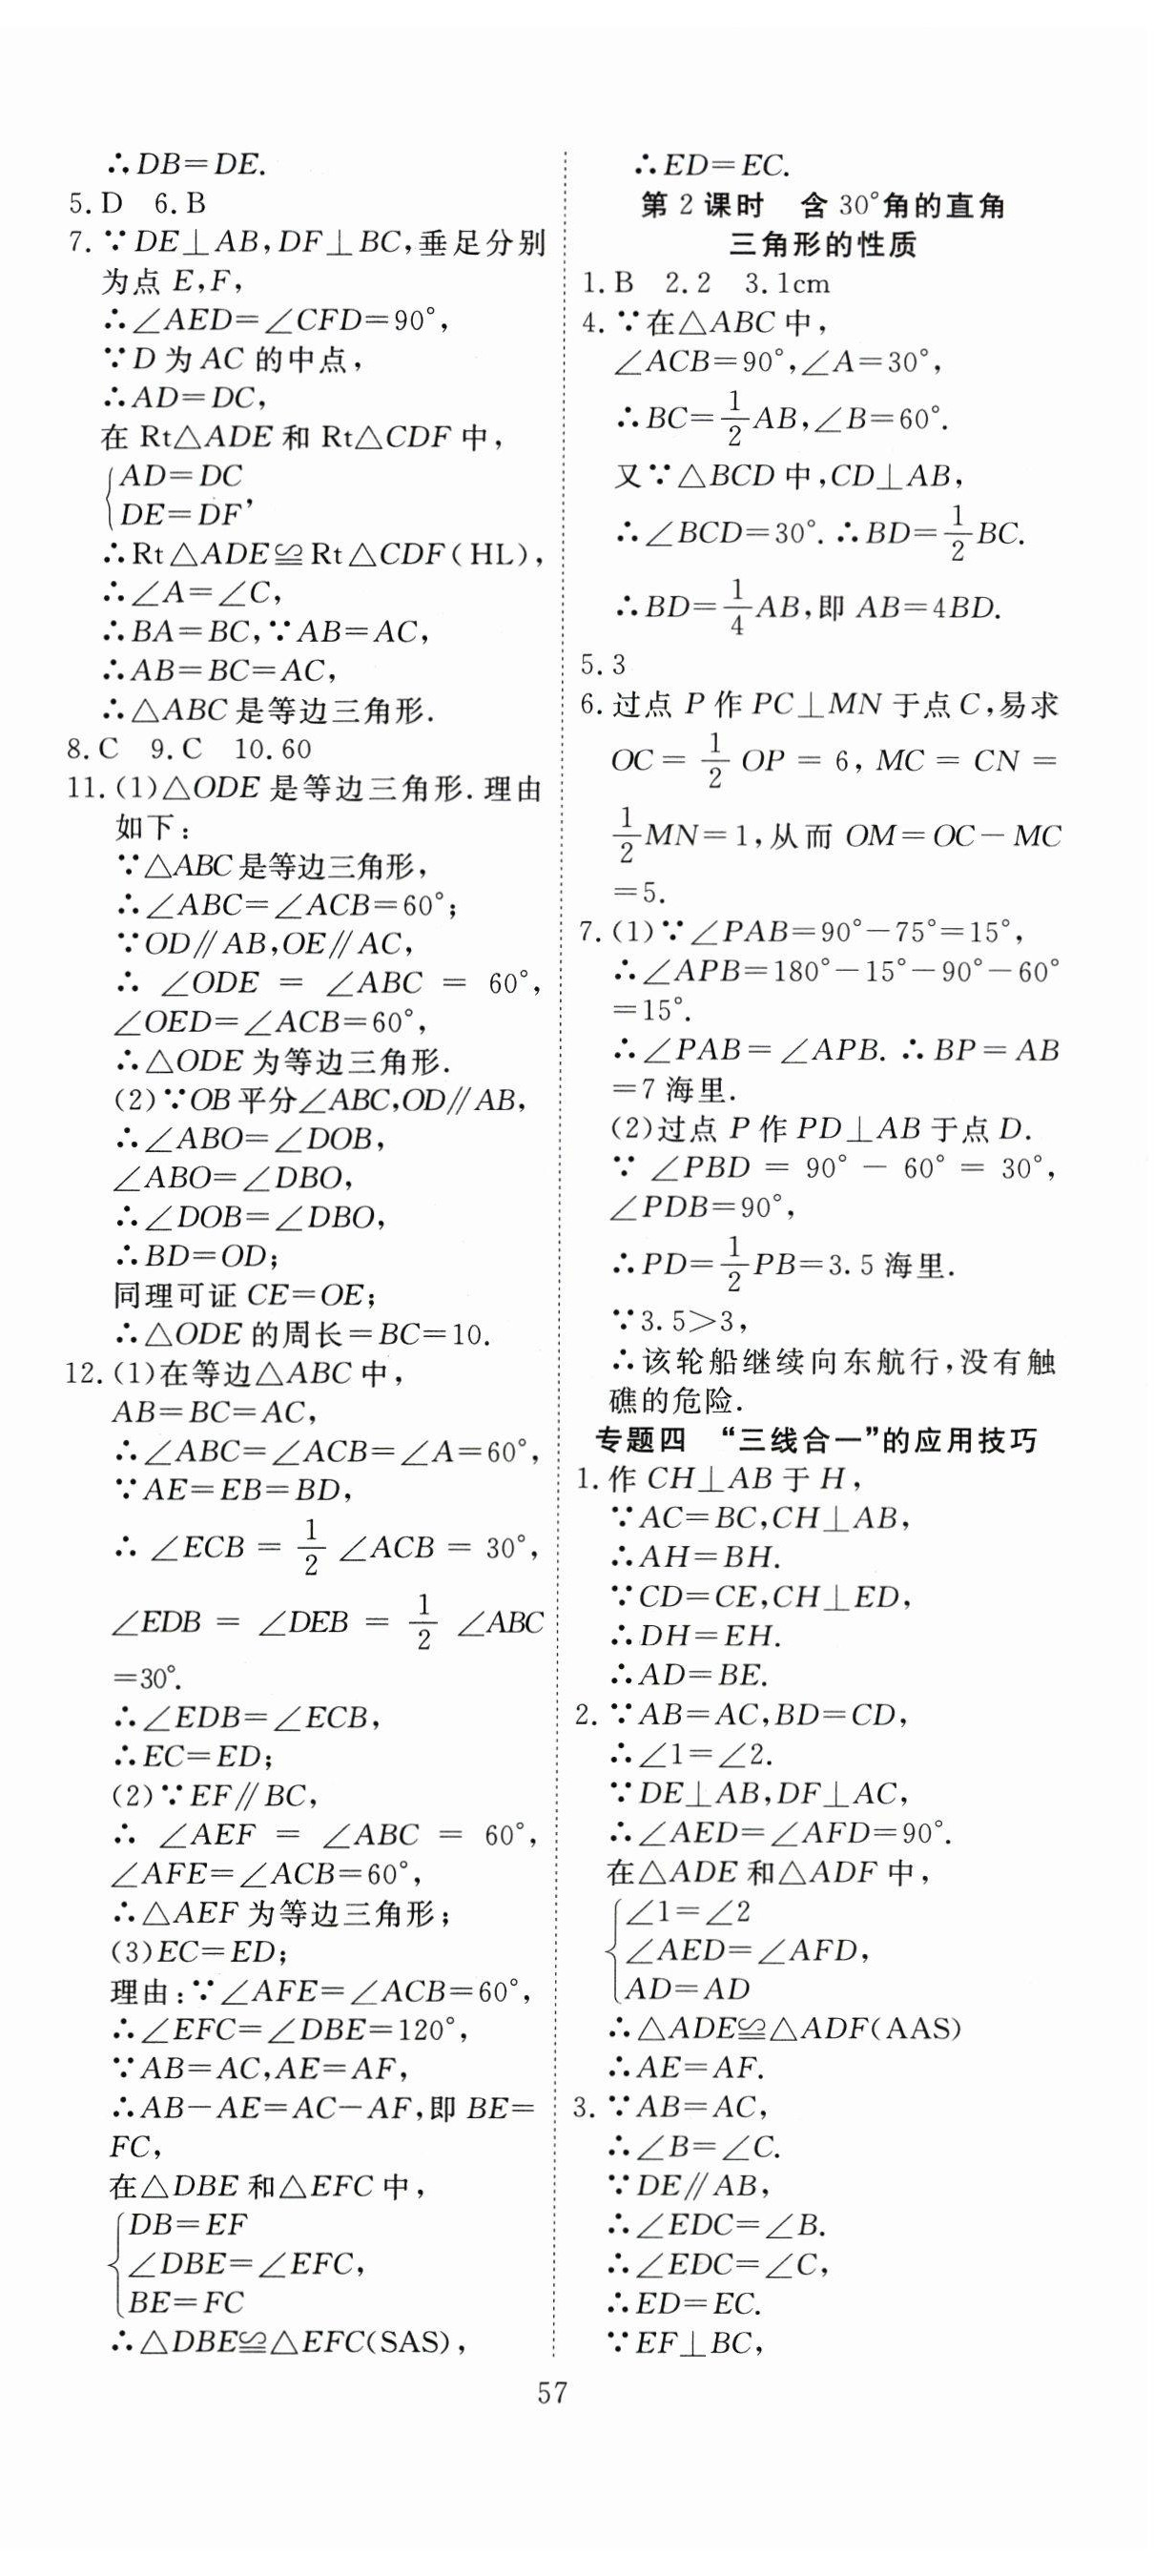 ∴DB=DE.
5.D 6.B
7.∵DE⊥AB,DF⊥BC,垂足分别
为点 E,F,
∴∠AED=∠CFD=90°,
∵D 为 AC 的中点,
∴AD=DC,
在 Rt△ADE 和 Rt△CDF 中,
{AD=DC
DE=DF,
∴Rt△ADE≌Rt△CDF(HL),
∴∠A=∠C,
∴BA=BC,∵AB=AC,
∴AB=BC=AC,
∴△ABC 是等边三角形.
8.C 9.C 10.60
11.(1)△ODE 是等边三角形.理由
如下:
∵△ABC 是等边三角形,
∴∠ABC=∠ACB=60°;
∵OD∥AB,OE∥AC,
∴ ∠ODE = ∠ABC = 60°,
∠OED=∠ACB=60°,
∴△ODE 为等边三角形.
(2)∵OB 平分∠ABC,OD∥AB,
∴∠ABO=∠DOB,
∠ABO=∠DBO,
∴∠DOB=∠DBO,
∴BD=OD;
同理可证 CE=OE;
∴△ODE 的周长=BC=10.
12.(1)在等边△ABC 中,
AB=BC=AC,
∴∠ABC=∠ACB=∠A=60°,
∵AE=EB=BD,
∴ ∠ECB = 1/2 ∠ACB = 30°,
∠EDB = ∠DEB = 1/2 ∠ABC
=30°.
∴∠EDB=∠ECB,
∴EC=ED;
(2)∵EF∥BC,
∴ ∠AEF = ∠ABC = 60°,
∠AFE=∠ACB=60°,
∴△AEF 为等边三角形;
(3)EC=ED;
理由:∵∠AFE=∠ACB=60°,
∴∠EFC=∠DBE=120°,
∵AB=AC,AE=AF,
∴AB−AE=AC−AF,即 BE=
FC,
在△DBE 和△EFC 中,
{DB=EF
∠DBE=∠EFC,
BE=FC
∴△DBE≌△EFC(SAS),
∴ED=EC.
第 2 课时 含 30°角的直角
三角形的性质
1.B 2.2 3.1cm
4.∵在△ABC 中,
∠ACB=90°,∠A=30°,
∴BC=1/2AB,∠B=60°.
又∵△BCD 中,CD⊥AB,
∴∠BCD=30°.∴BD=1/2BC.
∴BD=1/4AB,即 AB=4BD.
5.3
6.过点 P 作 PC⊥MN 于点 C,易求
OC = 1/2 OP = 6, MC = CN =
1/2MN=1,从而 OM=OC−MC
=5.
7.(1)∵∠PAB=90°−75°=15°,
∴∠APB=180°−15°−90°−60°
=15°.
∴∠PAB=∠APB.∴BP=AB
=7 海里.
(2)过点 P 作 PD⊥AB 于点 D.
∵ ∠PBD = 90° − 60° = 30°,
∠PDB=90°,
∴PD=1/2PB=3.5 海里.
∵3.5>3,
∴该轮船继续向东航行,没有触
礁的危险.
专题四 “三线合一”的应用技巧
1.作 CH⊥AB 于 H,
∵AC=BC,CH⊥AB,
∴AH=BH.
∵CD=CE,CH⊥ED,
∴DH=EH.
∴AD=BE.
2.∵AB=AC,BD=CD,
∴∠1=∠2.
∵DE⊥AB,DF⊥AC,
∴∠AED=∠AFD=90°.
在△ADE 和△ADF 中,
{∠1=∠2
∠AED=∠AFD,
AD=AD
∴△ADE≌△ADF(AAS)
∴AE=AF.
3.∵AB=AC,
∴∠B=∠C.
∵DE∥AB,
∴∠EDC=∠B.
∴∠EDC=∠C,
∴ED=EC.
∵EF⊥BC,
57